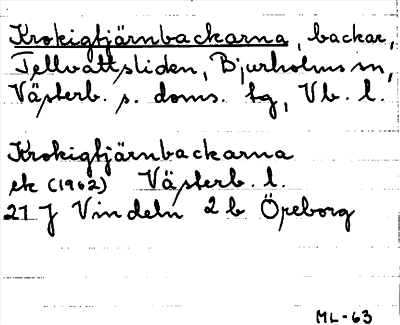 Krokigtjärnbackarna, backar,
Tellvattsliden, Bjurholms sn,
Västerb. s. doms. tg, Vb. l.
Krokigtjärnbackarna
ek (1962) Västerb. l.
21 J Vindeln 2 b Öreborg
ML-63